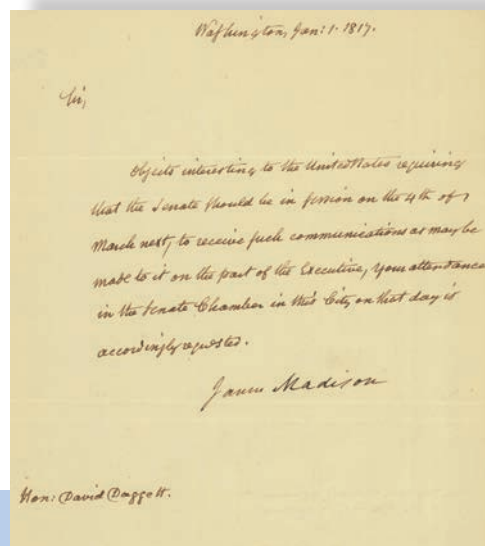 Washington, Jan: 1. 1817.
Sir,
Objects interesting to the United States requiring
that the Senate should be in session on the 4th of
March next, to receive such communications as may be
made to it on the part of the Executive, your attendance
in the Senate Chamber in this City on that day is
accordingly requested.
James Madison
Hon: David Daggett.